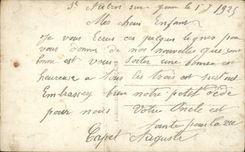 St Aubin sur yon le 1 7 1925
Mes chers Enfants
Je vous écris ces quelques lignes pour
vous donner de nos nouvelles que sont
bonne est vous une bonne
heureuse a tous les trois est surtout
Embrassez bien notre petit
pour nous Votre Oncle est
Tante pour la vie
Capet Auguste